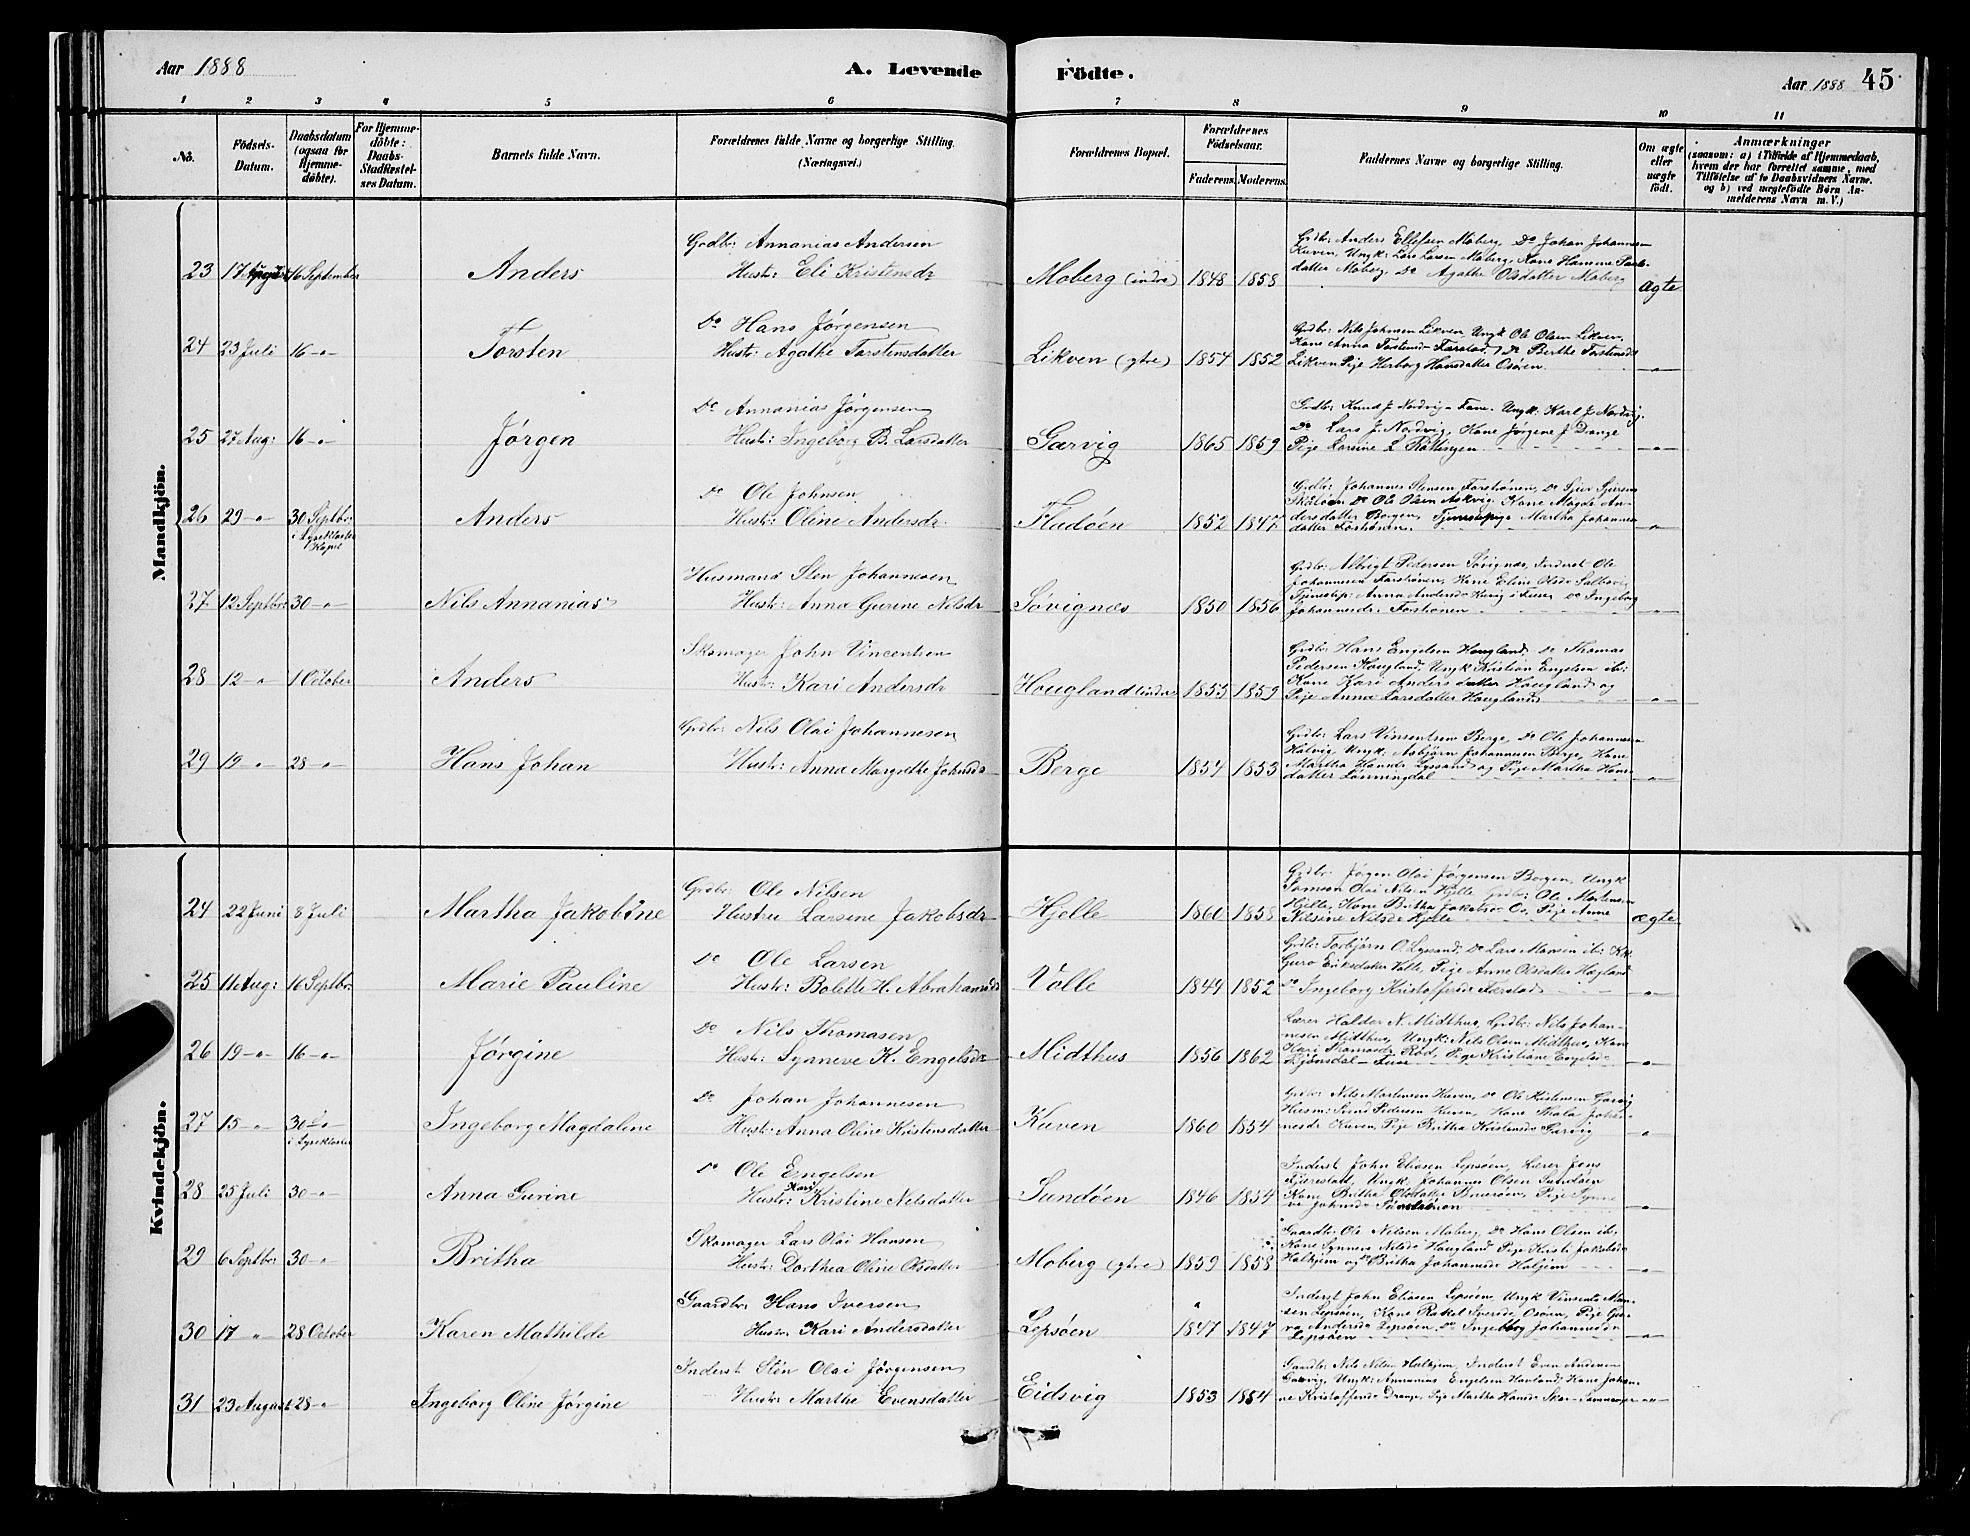 Aar 1888
A. Levende
Födte.
Aar 1888 45
1 2 3 4 5 6 7 8 9 10 11
No.
Födsels-Datum.
Daabsdatum (ogsaa for Hjemme-döbte).
For Hjemme-döbte: Daabs-Stadfæstel-ses Datum.
Barnets fulde Navn.
Forældrenes fulde Navne og borgerlige Stilling.
(Næringsvei.)
Forældrenes Bopæl.
Forældrenes Födselsaar.
Faderens. Moderens.
Faddernes Navne og borgerlige Stilling.
Om ægte eller uægte födt.
Anmærkninger
(saasom: a) i Tilfælde af Hjemmedaab,
hvem der har forrettet samme, med
Tilföielse af to Daabsvidners Navne.
og b) ved uægtefödte Börn An-
melderens Navn m. V.)
Mandkjön.
Grdbr: Annanias Andersen
23 17 August 16 September Anders Hustr: Eli Kristensdr Moberg (indre) 1848 1858 ægte
Grdbr: Anders Ellefsen Moberg, Do Johan Johannesen
Kuven, Ungk: Lars Larsen Moberg, Kone Hanne
datter Moberg, Do Agathe Olsdatter Moberg
Do Hans Jørgensen
24 23 Juli 16 -"- Torsten Hustr: Agathe Torstensdatter Likven (ytre) 1854 1852 -"-
Grdbr: Nils Johnsen Likven, Ungk Ole Olsen Likven,
Kone Anna Torstensdr Do Berthe Torstensdr
Likven Pige Herborg Hansdatter Osøren
Do Annanias Jørgensen
25 27 Aug: 16 -"- Jørgen Hustr: Ingeborg B. Larsdatter Gærvig 1865 1859 -"-
Grdbr: Knud J. Nordvig - Fane. Ungk: Karl J. Nordvig.
Do Lars J. Nordvig, Kone Jørgene J. Drange
Pige Larsine L Røttingen
Do Ole Johnsen
26 29 -"- 30 Septbr: i Lyseklosters Kapel Anders Hustr: Oline Andersdr. Fladøen 1852 1847 -"-
Grdbr: Johannes Stensen Forstrønen, Do Sjur Sjursen
Do Ole Olsen Askvig, Kone Magda An-
dersdatter Borgen, Tjenestepige Martha Johannes
datter Forstrønen
Husmand Sten Johannesen
27 12 Septbr: 30 -"- Nils Annanias Hustr: Anna Gurine Nilsdr Søvignæs 1850 1856 -"-
Grdbr: Albrigt Pedersen Søvignæs, Inderst Ole
Johannesen Forstrønen, Kone Eline Olsdr
Tjenestep: Anna Andersdr i Do Ingeborg
Johannesdr: Forstrønen
Skomager John Vincentsen
28 12 -"- 1 October Anders Hustr: Kari Andersdr Hougland (indre) 1855 1859 -"-
Grdbr: Hans Engelsen Hougland, Do Thomas
Pedersen Hougland, Ungk Kristian Engelsen ib:
Kone Kari Andersdatter Hougland og
Pige Anna Larsdatter Hougland
Grdbr: Nils Olai Johannesen
29 19 -"- 28 -"- Hans Johan Hustr: Anna Margrethe Johnsdr Berge 1854 1853 -"-
Grdbr: Lars Vinsentsen Berge, Do Ole Johannesen
Halvig, Ungk: Asbjørn Johannesen Berge, Kone
Martha Hansdr Lyssand og Pige Martha Hans
datter Lønningdal
Kvindekjön.
Grdbr: Ole Nilsen
24 22 Juni 8 Juli Martha Jakobine Hustru Larsine Jakobsdr Hjelle 1860 1858 ægte
Grdbr: Jørgen Olai Jørgensen Borgen, Ungk
Samson Olai Nilsen Hjelle Grdbr: Ole Mortensen
Hjelle, Kone Britha Jakobsdr Os, Pige Anne
Nilsine Nilsdr Hjelle
Do Ole Larsen
25 11 Aug: 16 Septbr. Marie Pauline Hustr: Bolette H. Abrahamsdr Valle 1849 1852 -"-
Grdbr: Torbjørn O. Lyssand, Do Lars Monsen ib: Kone
Guro Eriksdatter Valle, Pige Anne Olsdatter Hagland
Do Ingeborg Kristoffersdr
Do Nils Thomasen
26 19 -"- 16 -"- Jørgine Hustr: Synneve K. Engelsdr Midthus 1856 1862 -"-
Lærer Haldor N. Midthus, Grdbr: Nils Johan-
nesen Midthus, Ungk: Nils Olsen Midthus, Kone
Kari Thomasdr Rød, Pige Kristiane Engelsdr
Do Johan Johannesen
27 15 -"- 30 -"- i Lysekloster Ingeborg Magdalene Hustr: Anna Oline Kristensdatter Kuven 1860 1854 -"-
Grdbr: Nils Mortensen Kuven, Do Ole Kristensen Gærvig
Husm: Pedersen Kuven, Kone Johan-
nesdr Kuven, Pige Britha Kristensdr Gærvig
Do Ole Engelsen
28 25 Juli 30 -"- Anna Gurine Hustr: Kari Kristine Nilsdatter Sundøen 1846 1854 -"-
Inderst John Eliasen Lepsøen, Lærer Jens
Ungk Johannes Olsen Sundøen
Kone Britha Olsdatter Pige Synne
ve Johnsdr
Skomager Lars Olai Hansen
29 6 Septbr: 30 -"- Britha Hustr: Dorthea Oline Olsdatter Moberg (ytre) 1859 1858 -"-
Gaardbr: Ole Nilsen Moberg, Do Hans Olsen ib.
Kone Synneve Nilsdr Hougland Pige Kirsti Jakobsdr
Halhjem og Do Britha Johannesdr Halhjem
Gaardbr Hans Iversen
30 17 " 28 October Karen Mathilde Hustr Kari Andersdatter Lepsøen 1847 1847 -"-
Inderst John Eliasen Lepsøen, Ungk Vinsents Mon-
sen Lepsøen, Kone Rakel Iversdr Osøren, Pige Gu-
ro Andersdr Lepsøen, Do Ingeborg Johannesdr
Lepsøen
Inderst Sten Olai Jørgensen
31 23 August 28 -"- Ingeborg Oline Jørgine Hustr Marthe Evensdatter Eidsvig 1853 1854 -"-
Gaardbr Nils Nilsen Halhjem, Inderst Even Andersen
Gærvig, Ungk: Annanias Engelsen Havland, Kone Johan-
ne Kristoffersdr Drange, Pige Martha Hansdr